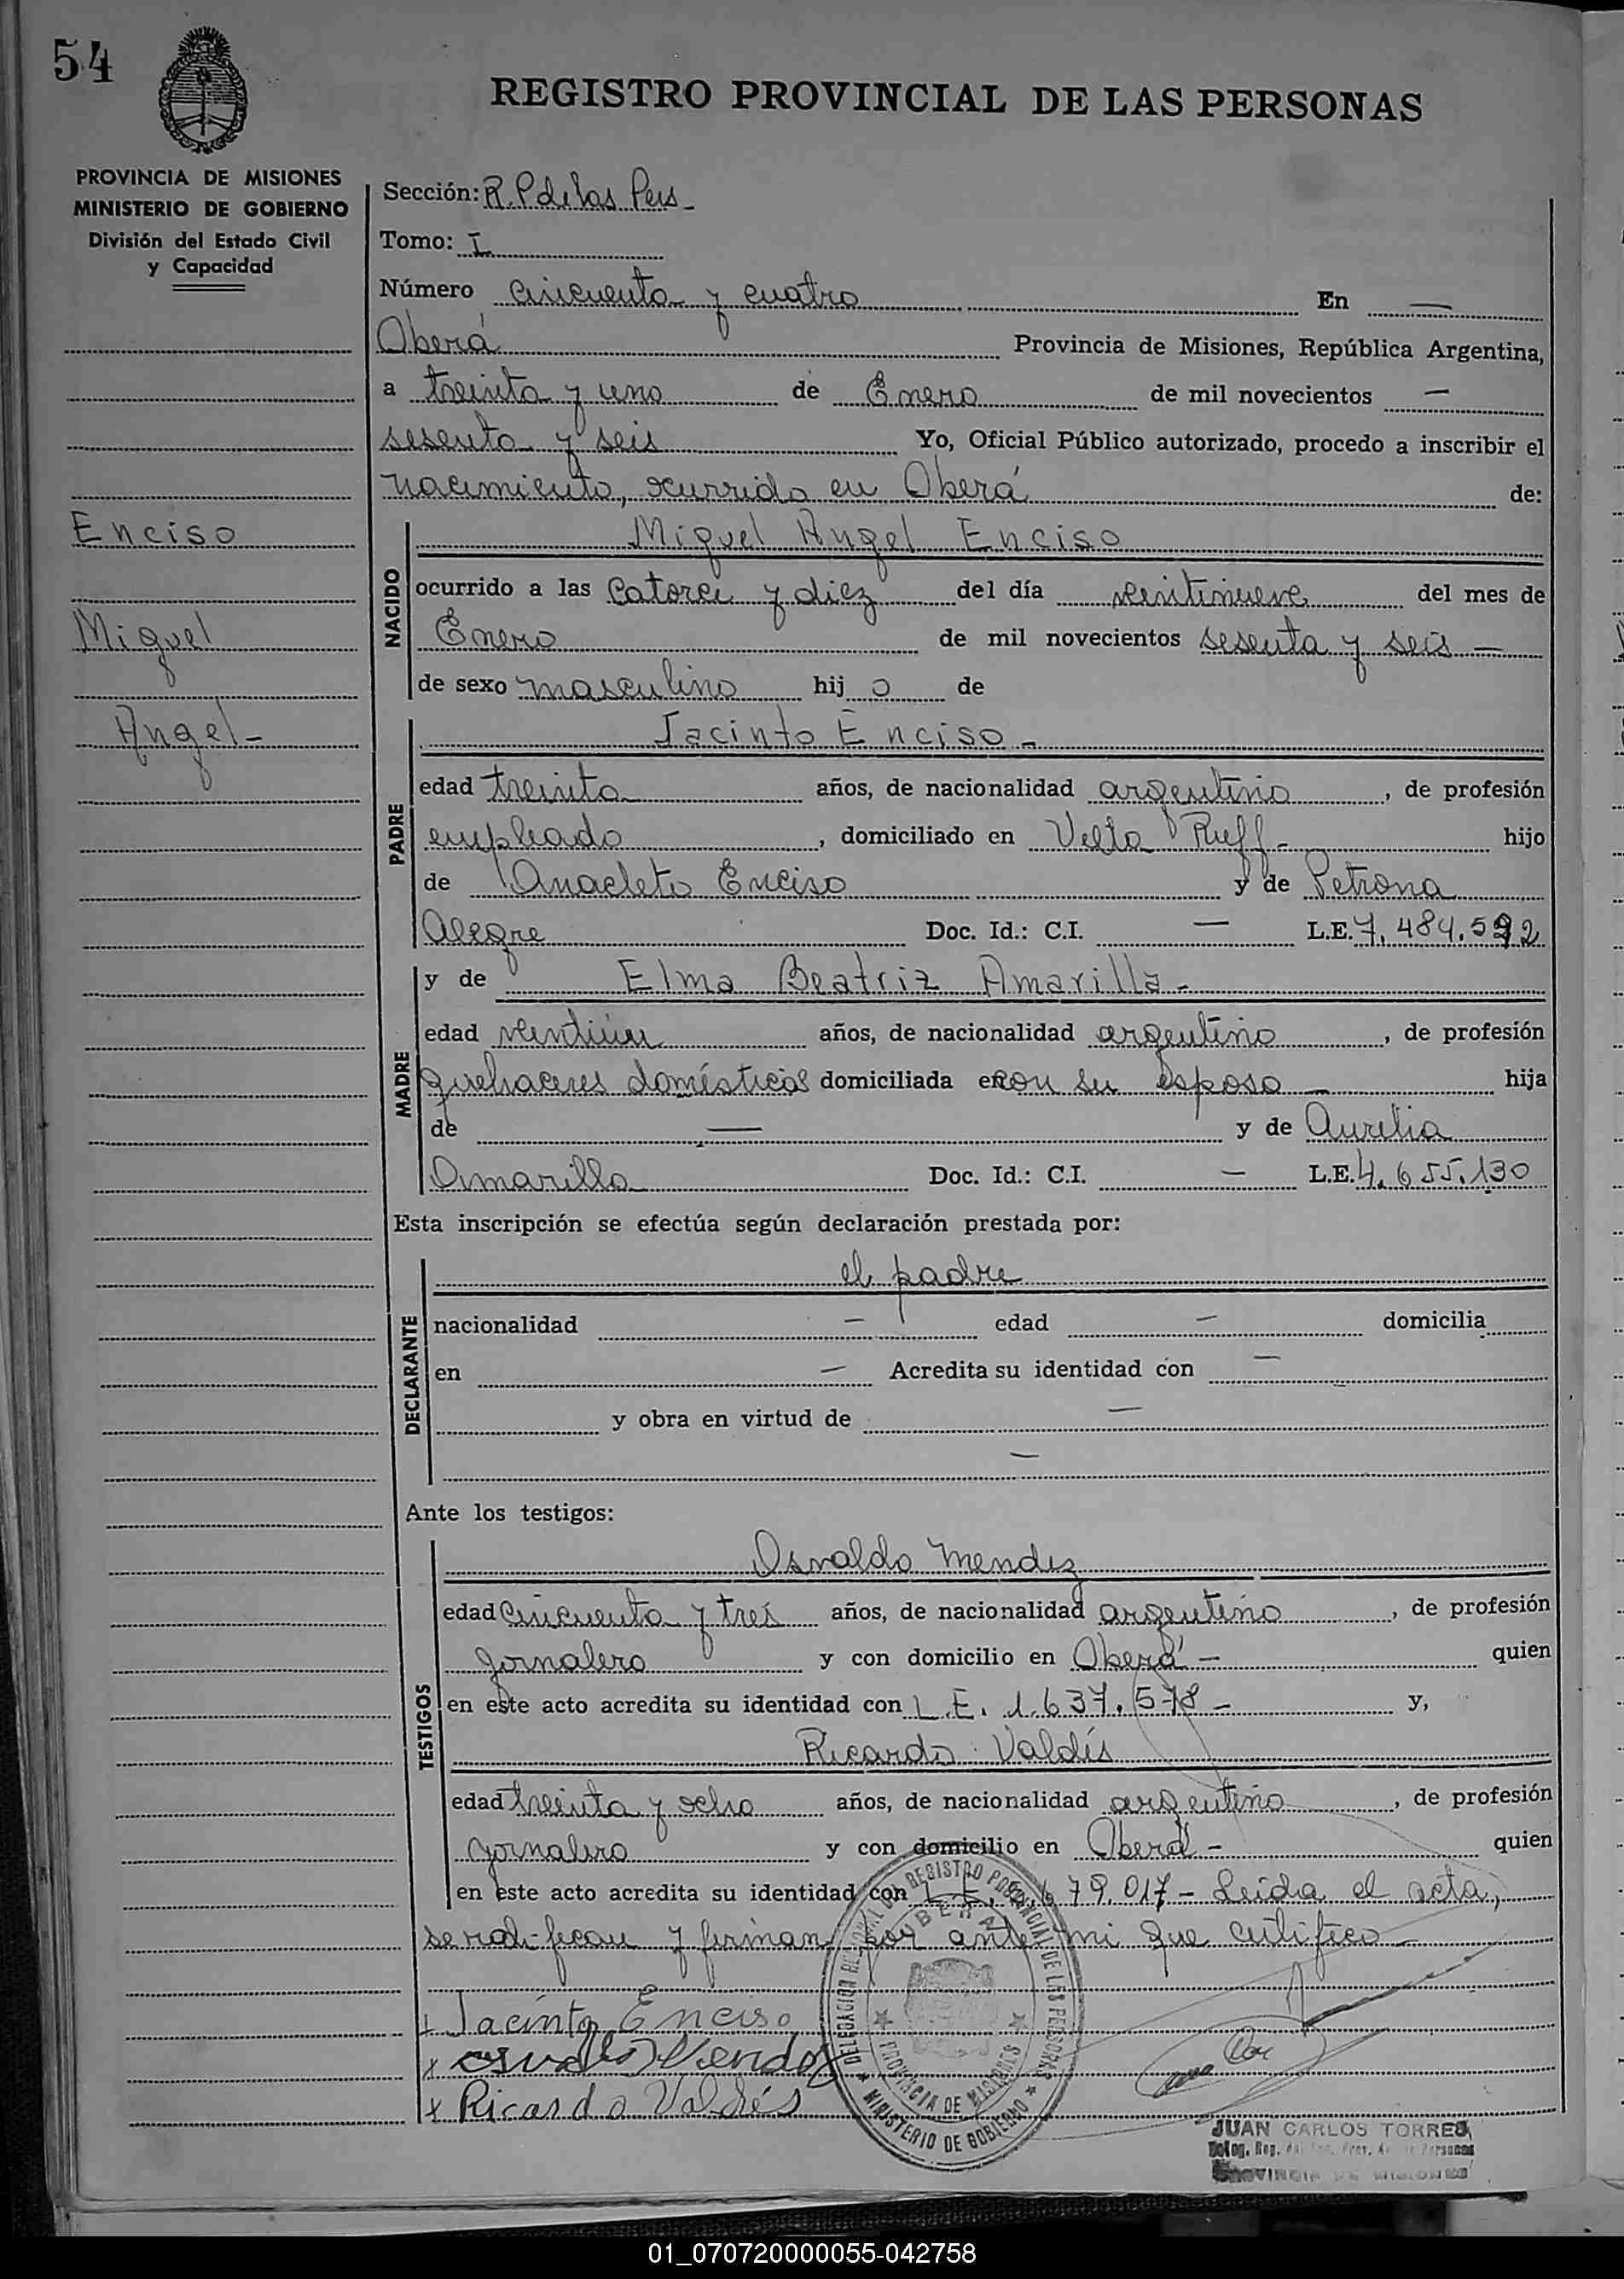 54
REGISTRO PROVINCIAL DE LAS PERSONAS
PROVINCIA DE MISIONES
MINISTERIO DE GOBIERNO
División del Estado Civil
y Capacidad
Sección: R. P de las Pers -
Tomo: I
Número cincuenta y cuatro En —
Oberá Provincia de Misiones, República Argentina,
a treinta y uno de Enero de mil novecientos —
sesenta y seis Yo, Oficial Público autorizado, procedo a inscribir el
nacimiento, ocurrido en Oberá de:
Enciso
Miguel
Angel -
NACIDO
Miguel Angel Enciso
ocurrido a las Catorce y diez del día veintinueve del mes de
Enero de mil novecientos sesenta y seis —
de sexo masculino hij o de
PADRE
Jacinto Enciso -
edad treinta años, de nacionalidad argentino, de profesión
empleado, domiciliado en Velta Ruff - hijo
de Anacleto Enciso y de Petrona
Alegre Doc. Id.: C.I. — L.E. 7.484.592
MADRE
y de Elma Beatriz Amarilla -
edad ventiún años, de nacionalidad argentino, de profesión
quehaceres domésticos domiciliada en con su esposo — hija
de — y de Aurelia
Amarilla Doc. Id.: C.I. — L.E. 4.655.130
Esta inscripción se efectúa según declaración prestada por:
DECLARANTE
el padre
nacionalidad — edad — domicilia
en — Acredita su identidad con —
y obra en virtud de —
—
Ante los testigos:
TESTIGOS
Osvaldo Mendez
edad cincuenta y tres años, de nacionalidad argentino, de profesión
jornalero y con domicilio en Oberá - quien
en este acto acredita su identidad con L.E. 1.637.578 - y,
Ricardo Valdés
edad treinta y ocho años, de nacionalidad argentino, de profesión
jornalero y con domicilio en Oberá - quien
en este acto acredita su identidad con 79.017 - Leída el acta,
se ratifican y firman por ante mi que certifico -
+ Jacinto Enciso
x Osvaldo Mendez
x Ricardo Valdés
DELEGACION REGIONAL DEL REGISTRO PROVINCIAL DE LAS PERSONAS
OBERA
PROVINCIA DE MISIONES
MINISTERIO DE GOBIERNO
JUAN CARLOS TORRES
Deleg. Reg. Prov. Personas
PROVINCIA DE MISIONES
01_070720000055-042758